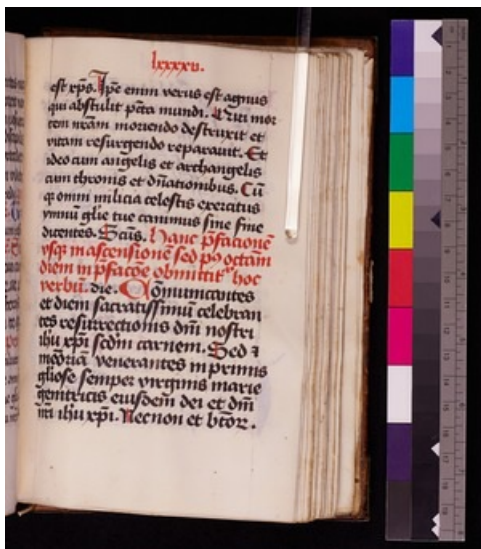 lxxxxv.
est xp̄s. Ip̄e enim verus est agnus
qui abstulit pc̄ta mundi. Qui mor
tem nr̄am moriendo destruxit et
vitam resurgendo reparauit. Et
ideo cum angelis et archangelis
cum thronis et dn̄ationibus. Cū
qꝫ omni milicia celestis exercitus
ymnū glīe tue canimus sine fine
dicentes. Sc̄us. Hanc p̄facionē
vsqꝫ in ascensionē sed pꝰ octām
diem in p̄facōe obmittitᷣ hoc
verbū. die. Cōmunicantes
et diem sacratissimū celebran
tes resurrectionis dn̄i nostri
ihu xp̄i scd̄m carnem. Sed ⁊
meōriā venerantes in primis
gliōse semper virginis marie
genitricis eiusdem dei et dn̄i
nr̄i ihu xp̄i. Necnon et btōꝝ.